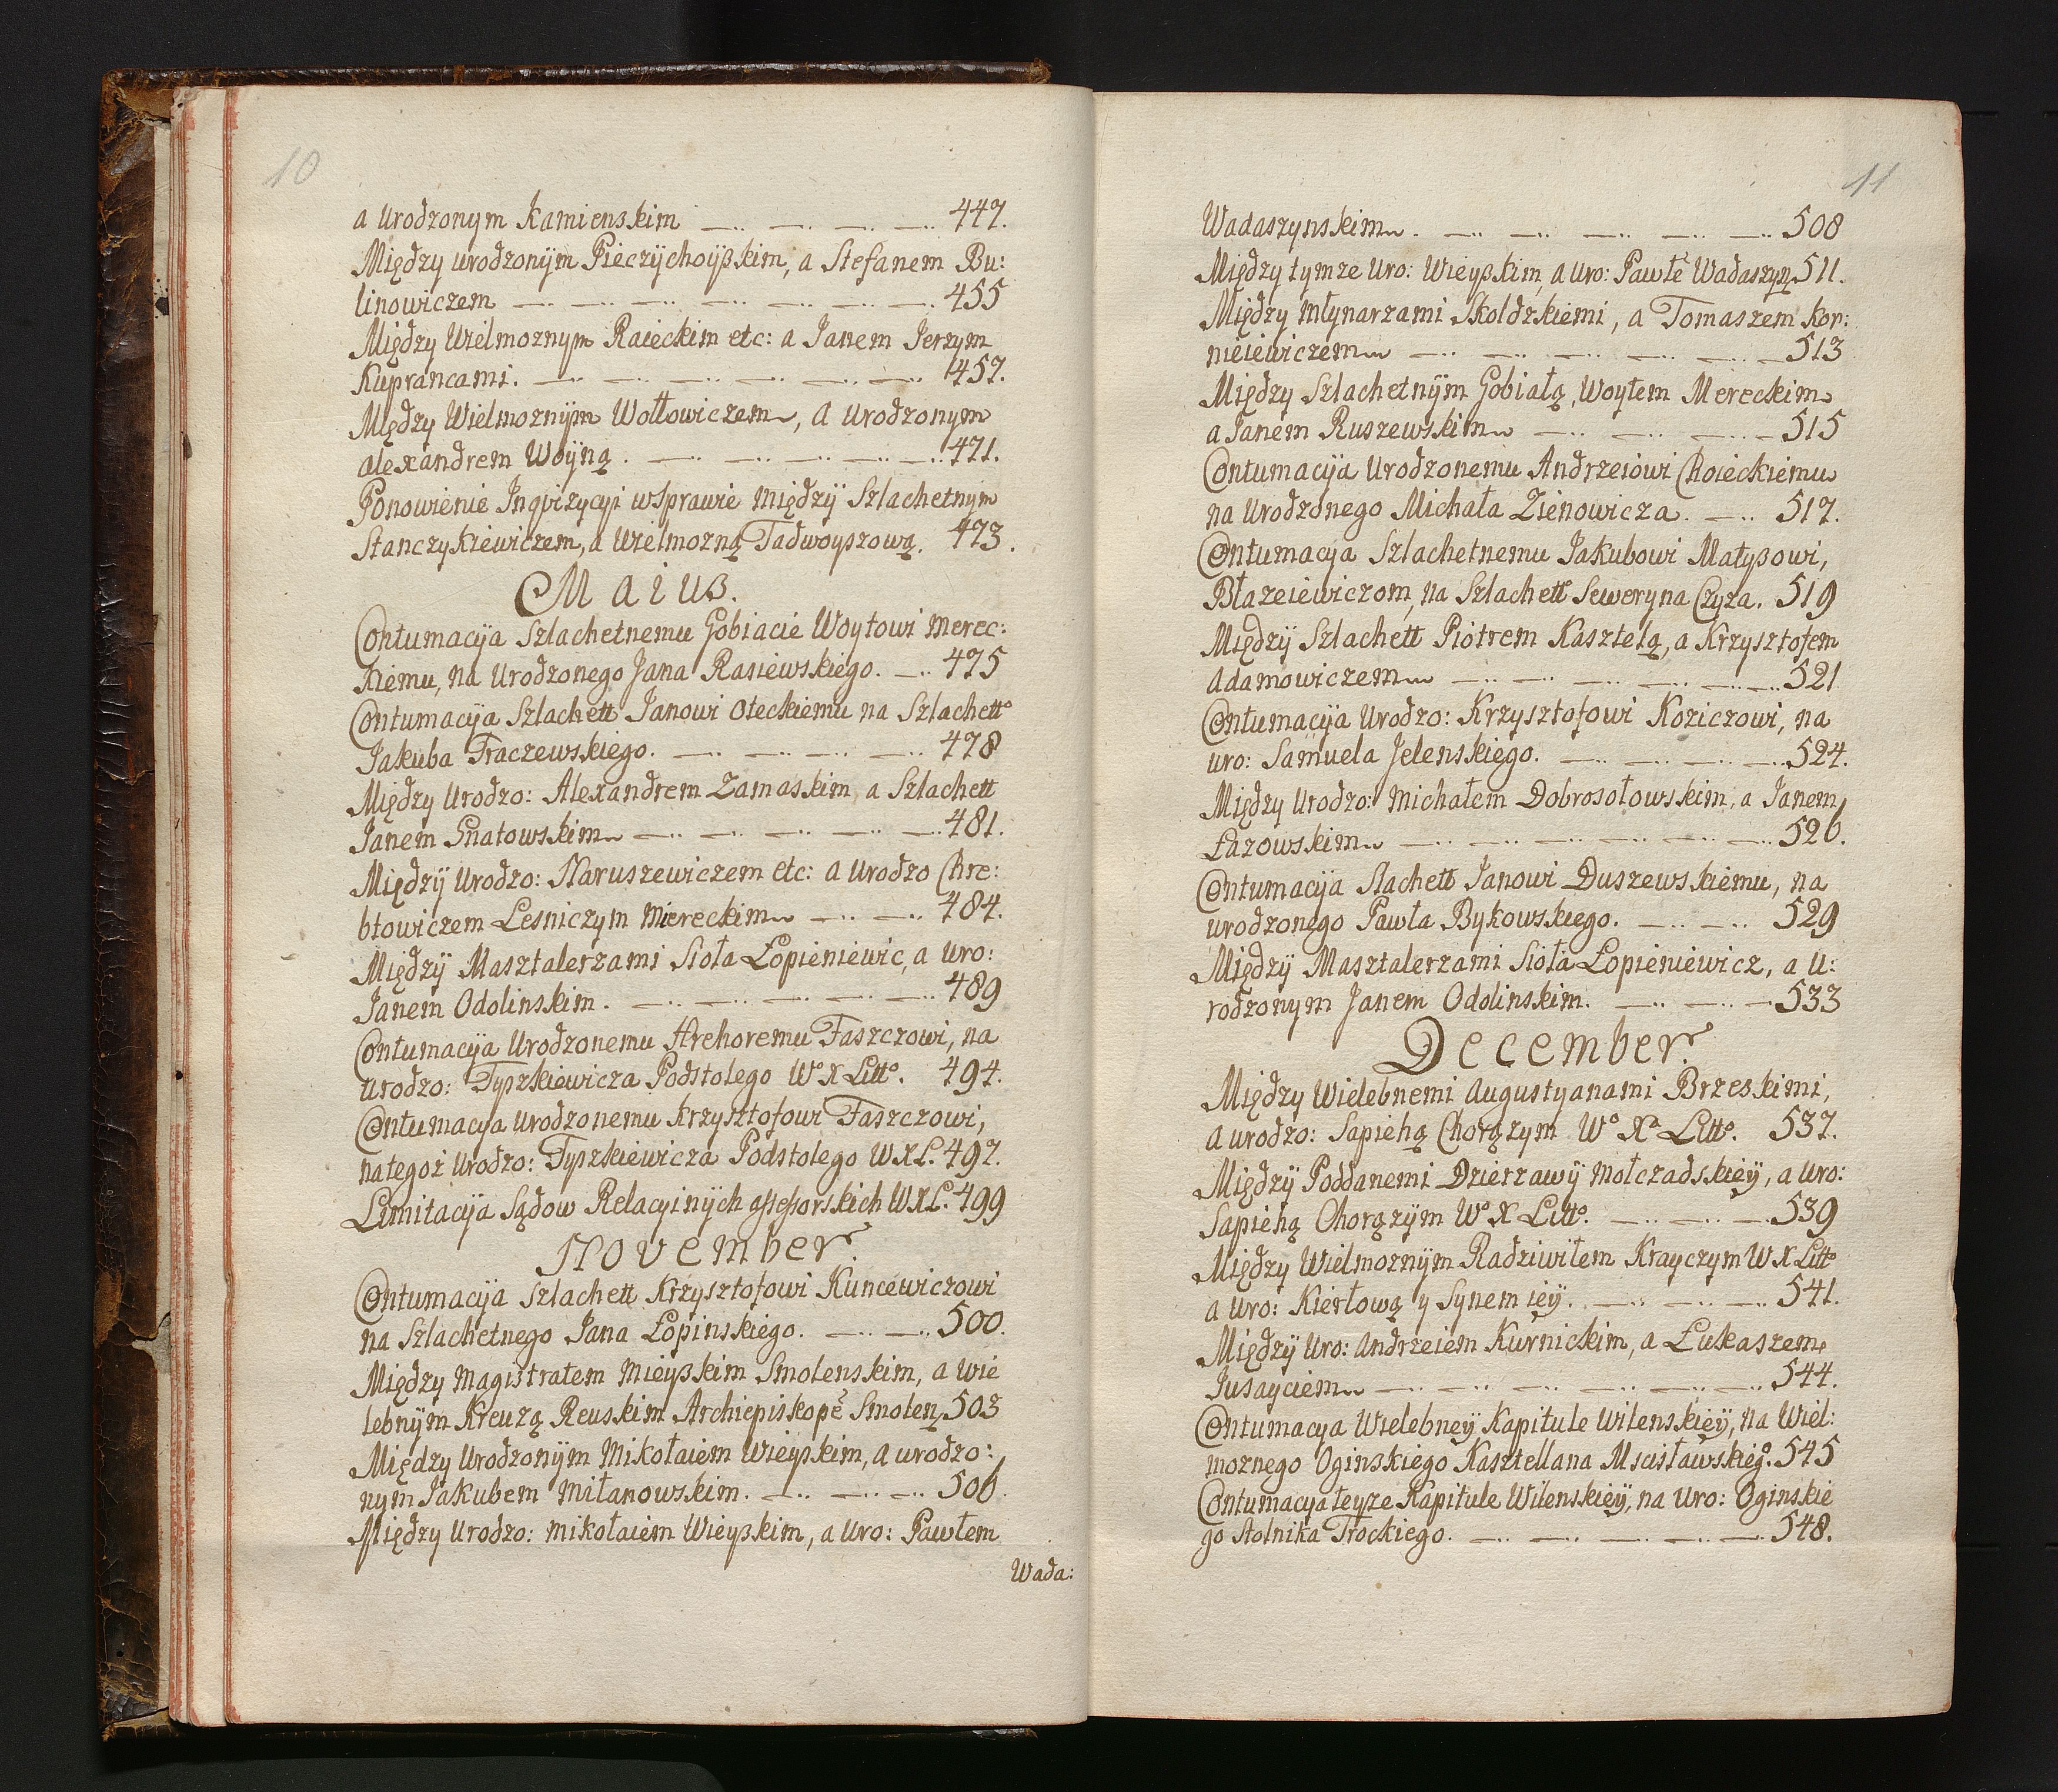 10
a urodzonym Kamienskim 447.
Między urodzonÿm Pieczÿchoÿskim, a Stefanem Bu:
linowiczem 455
Między Wielmoznym Raieckim etc: a Janem Jerzym
Kuprancami. 457.
Między Wielmoznÿm Wołłowiczem, a urodzonym
alexandrem Woÿną. 471.
Ponowienie Inqvizycyi w sprawie międzÿ Szlachetnym
Stanczykiewiczem, a Wielmozną Tadwoyszową. 473.
Maius.
Contumacÿa Szlachetnemu Gobiacie Woytowi merec:
kiemu, na Urodzonego Jana Rasiewskiego. 475
Contumacÿa Szlachett Janowi Oteckiemu na Szlachetto
Jakuba Traczewskiego. 478
Między Urodzo: Alexandrem Zamaskim, a Szlachett
Janem Gnatowskim 481.
Międzÿ Urodzo: Naruszewiczem etc: a Urodzo Chre:
btowiczem Lesniczym Miereckim 484.
Międzÿ Masztalerzami Sioła Łopieniewic, a uro:
Janem Odolinskim. 489
Contumacÿa Urodzonemu Hrehoremu Faszczowi, na
urodzo: Tyszkiewicza Podstolego Wo X Litto. 494.
Contumacya urodzonemu Krzysztofowi Faszczowi,
na tegoż Urodzo: Tyszkiewicza Podstolego W X L. 497.
Limitacÿa Sądow Relacyinÿch assessorskich W X L. 499
November.
Contumacÿa Szlachett Krzysztofowi Kuncewiczowi
na Szlachetnego Jana Łopinskiego. 500.
Między Magistratem mieyskim Smolenskim, a wie
lebnÿm Kreuzą Reuskim Archiepiskopē Smolen, 503
Między Urodzonÿm Mikołaiem Wieyskim, a urodzo:
nym Jakubem Miłanowskim. 506.
Między Urodzo: mikołaiem Wieyskim, a Uro: Pawłem
Wada:
11
Wadaszynskim. 508
Między tymze Uro: Wieyskim, a Uro: Pawłē Wadaszyn 511.
Między Młynarzami Skoldzkiemi, a Tomaszem Kor:
nieiewiczem 513
Między Szlachetnÿm Gobiatą, Woytem Mereckim
a Janem Ruszewskim 515
Contumacÿa Urodzonemu Andrzeiowi Choieckiemu
na Urodzonego Michała Zienowicza. 517.
Contumacya Szlachetnemu Jakubowi Matysowi,
Błazeiewiczom, na Szlachetto Seweryna Czyza. 519
Międzÿ Szlachett Piotrem Kasztelą, a Krzysztofem
adamowiczem 521
Contumacÿa Urodzo: Krzysztofowi Koziczowi, na
uro: Samuela Jelenskiego. 524.
Między Urodzo: Michałem Dobrosołowskim, a Janem
Łazowskim 526.
Contumacÿa Slachett Janowi Duszewskiemu, na
urodzonego Pawła Bykowskiego. 529
Międzÿ Masztalerzami Sioła Łopieniewicz, a U:
rodzonym Janem Odolinskim. 533
December.
Między Wielebnemi Augustyanami Brzeskimi,
a urodzo: Sapiehą Chorązym Wo Xa Litto. 537.
Międzÿ Poddanemi Dzierzawÿ Mołczadskieÿ, a uro:
Sapiehą Chorązÿm Wo X Litto. 539
Między Wielmoznÿm Radziwiłem Krayczym W X Litto
a uro: Kierłową y Synem ieÿ. 541.
Międzÿ Uro: Andrzeiem Kurnickim, a Łukaszem
Jusayciem 544.
Contumacya Wielebneÿ Kapitule Wilenskieÿ, na Wiel:
moznego Oginskiego Kasztellana Mscisławskiego. 545
Contumacya teyze Kapitule Wilenskieÿ, na Uro: Oginskie
go Stolnika Trockiego. 548.